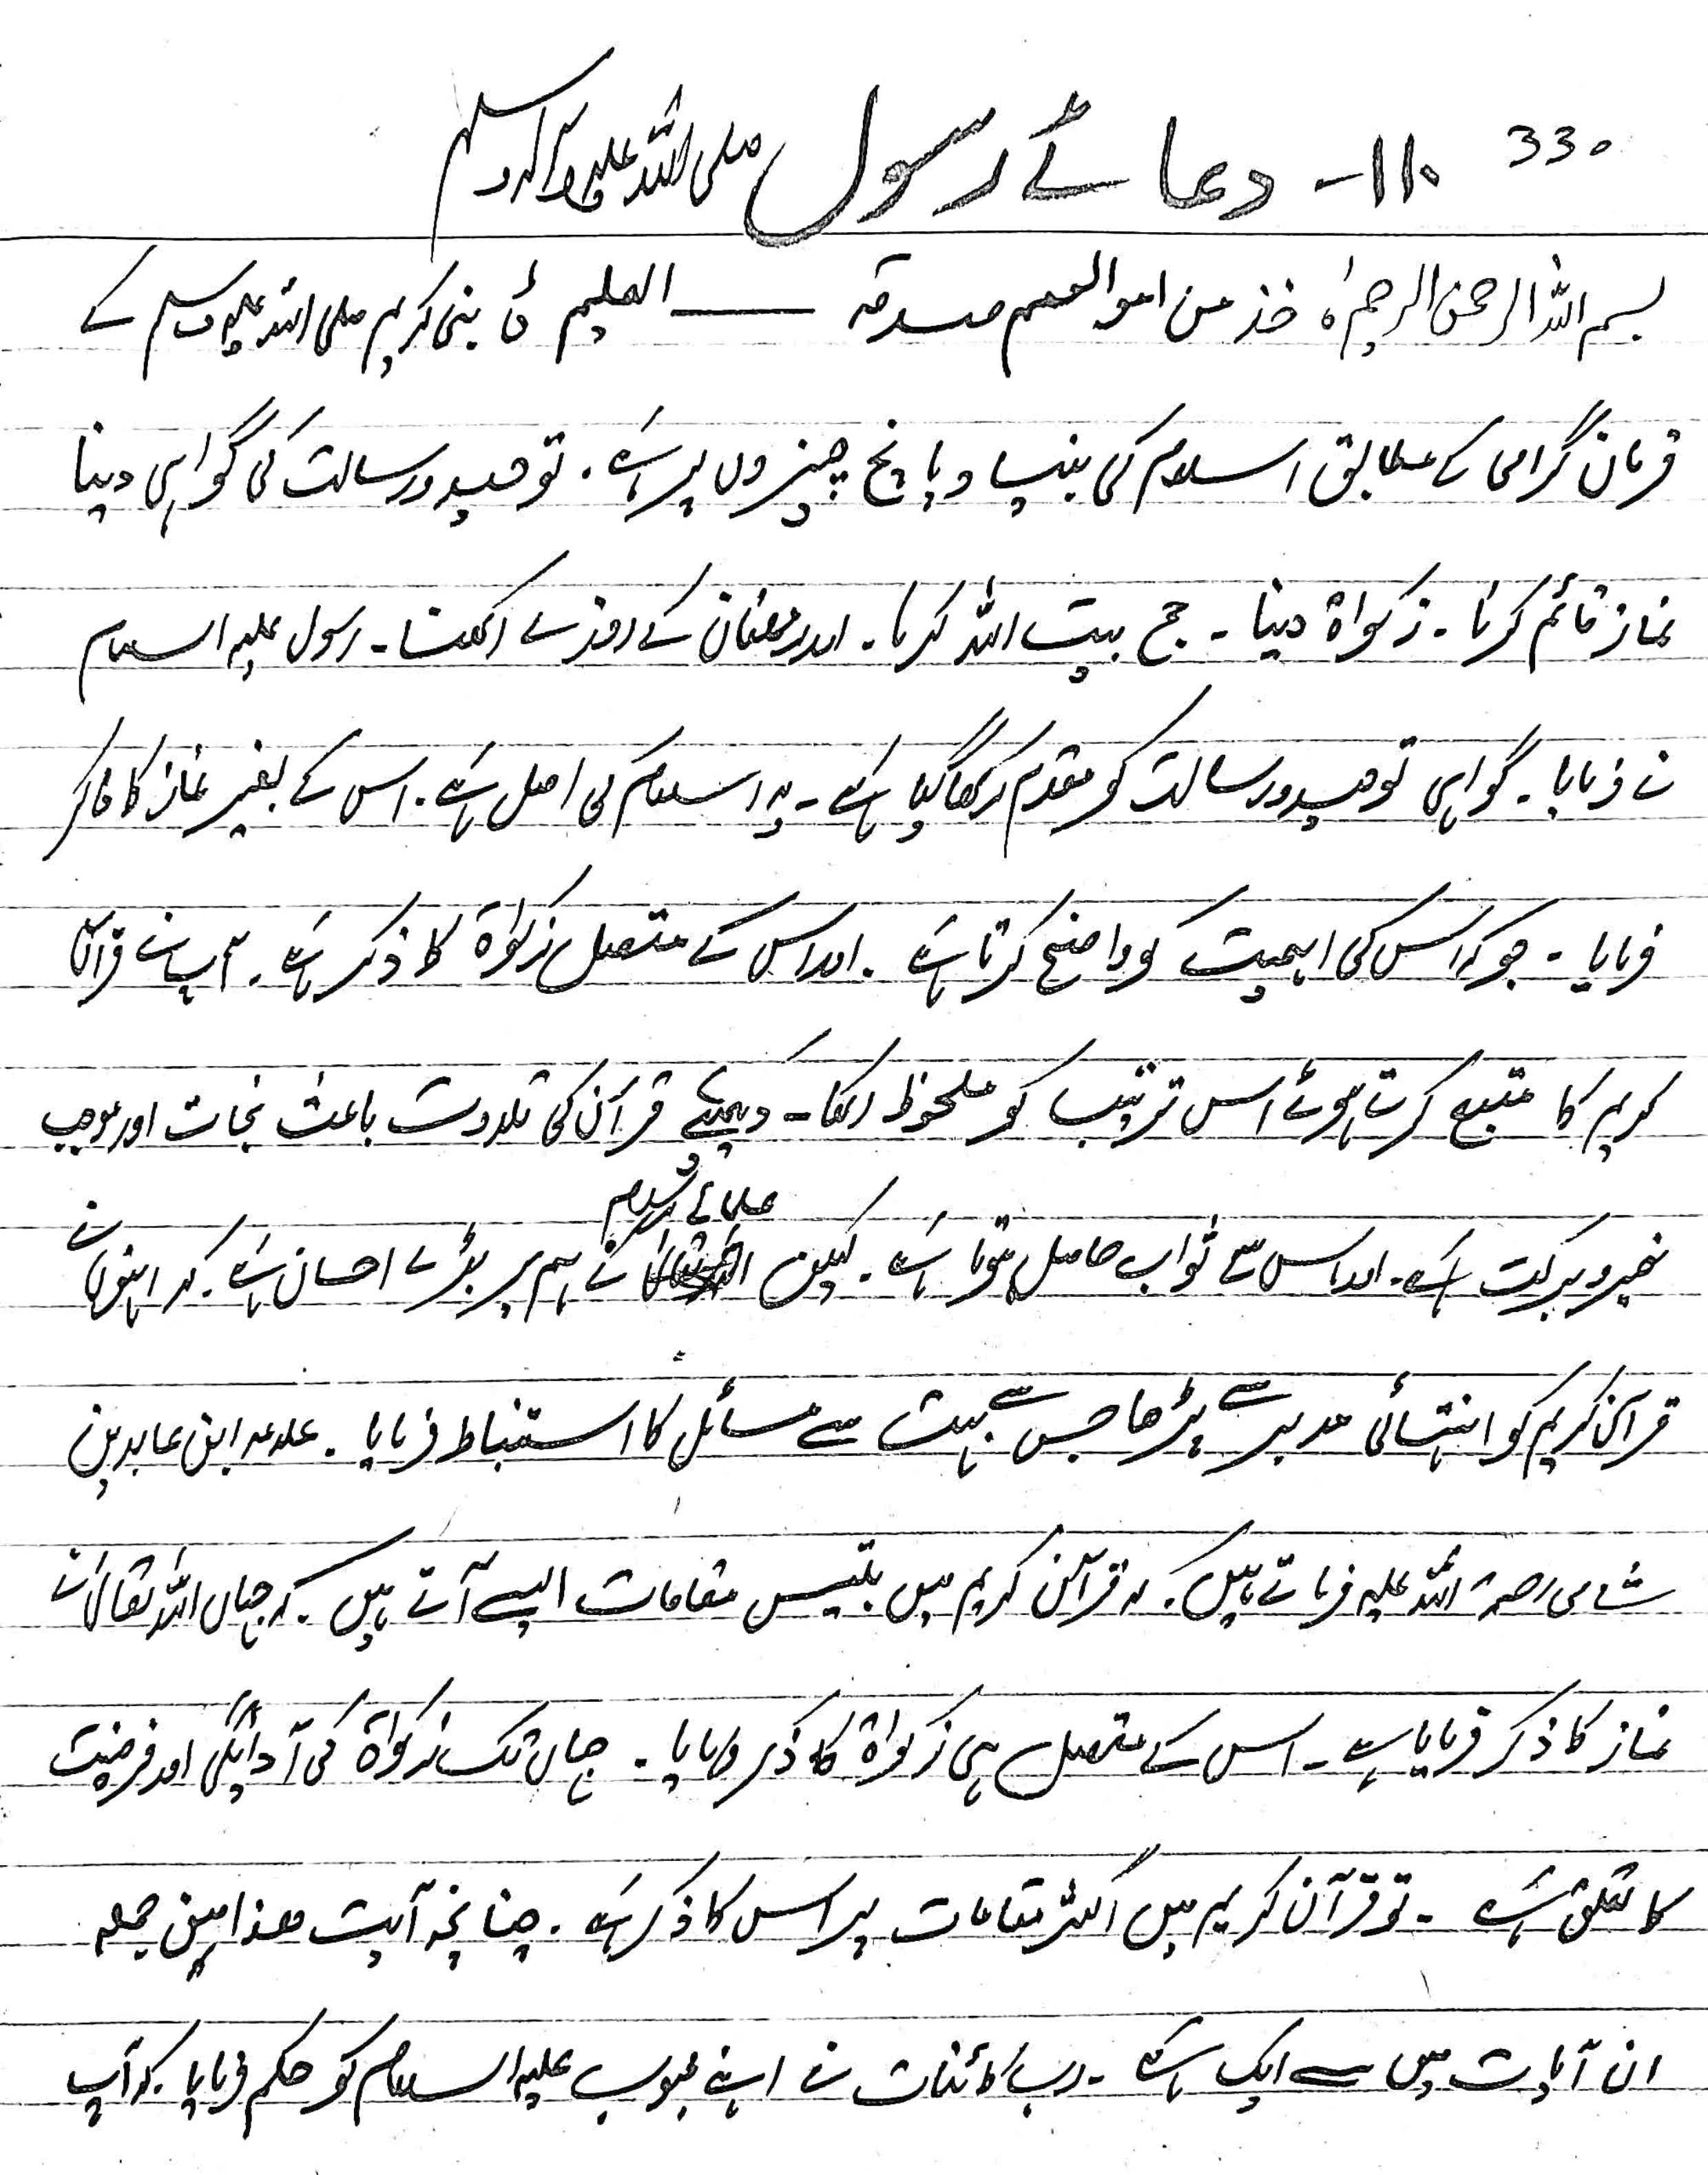 330
110- دعائے رسول صلی اللہ علیہ وآلہ وسلم
بسم اللہ الرحمن الرحیم ہ خذ من اموالھم صدقہ —— العلیم ہ نبی کریم صلی اللہ علیہ وسلم کے
فرمان گرامی کے مطابق اسلام کی بنیاد پانچ چیزوں پر ہے ۔ توحید ورسالت کی گواہی دینا
نماز قائم کرنا ۔ زکواۃ دینا ۔ حج بیت اللہ کرنا ۔ اور رمضان کے روزے رکھنا ۔ رسول علیہ السلام
نے فرمایا ۔ گواہی توحید ورسالت کو مقدم رکھا گیا ہے ۔ یہ اسلام کی اصل ہے ۔ اس کے بغیر نماز کا ذکر
فرمایا ۔ جو کہ اس کی اہمیت کو واضح کرتا ہے ۔ اور اس کے متصل زکواۃ کا ذکر ہے ۔ آپ نے قرآن
کریم کا متبع کرتے ہوئے اس ترتیب کو ملحوظ رکھا ۔ دیکھئے قرآن کی تلاوت باعث نجات اور موجب
خیر وبرکت ہے ۔ اور اس سے ثواب حاصل ہوتا ہے ۔ لیکن علمائے اسلام نے ہم پر بڑے احسان ہے ۔ کہ انہوں نے
قرآن کریم کو انتہائی مدبر سے پڑھا جس سے بہت سے مسائل کا استنباط فرمایا ۔ علامہ ابن عابدین
شامی رحمۃ اللہ علیہ فرماتے ہیں ۔ کہ قرآن کریم میں بتیس مقامات ایسے آتے ہیں ۔ کہ جہاں اللہ تعالیٰ نے
نماز کا ذکر فرمایا ہے ۔ اس کے متصل ہی زکواۃ کا ذکر فرمایا ۔ جہاں تک زکواۃ کی آدائیگی اور فرضیت
کا تعلق ہے ۔ تو قرآن کریم میں اکثر مقامات پر اس کا ذکر ہے ۔ چنانچہ آیت ھذا میں جملہ
ان آیات میں سے ایک ہے ۔ رب کائنات نے اپنے محبوب علیہ السلام کو حکم فرمایا ۔ کہ آپ